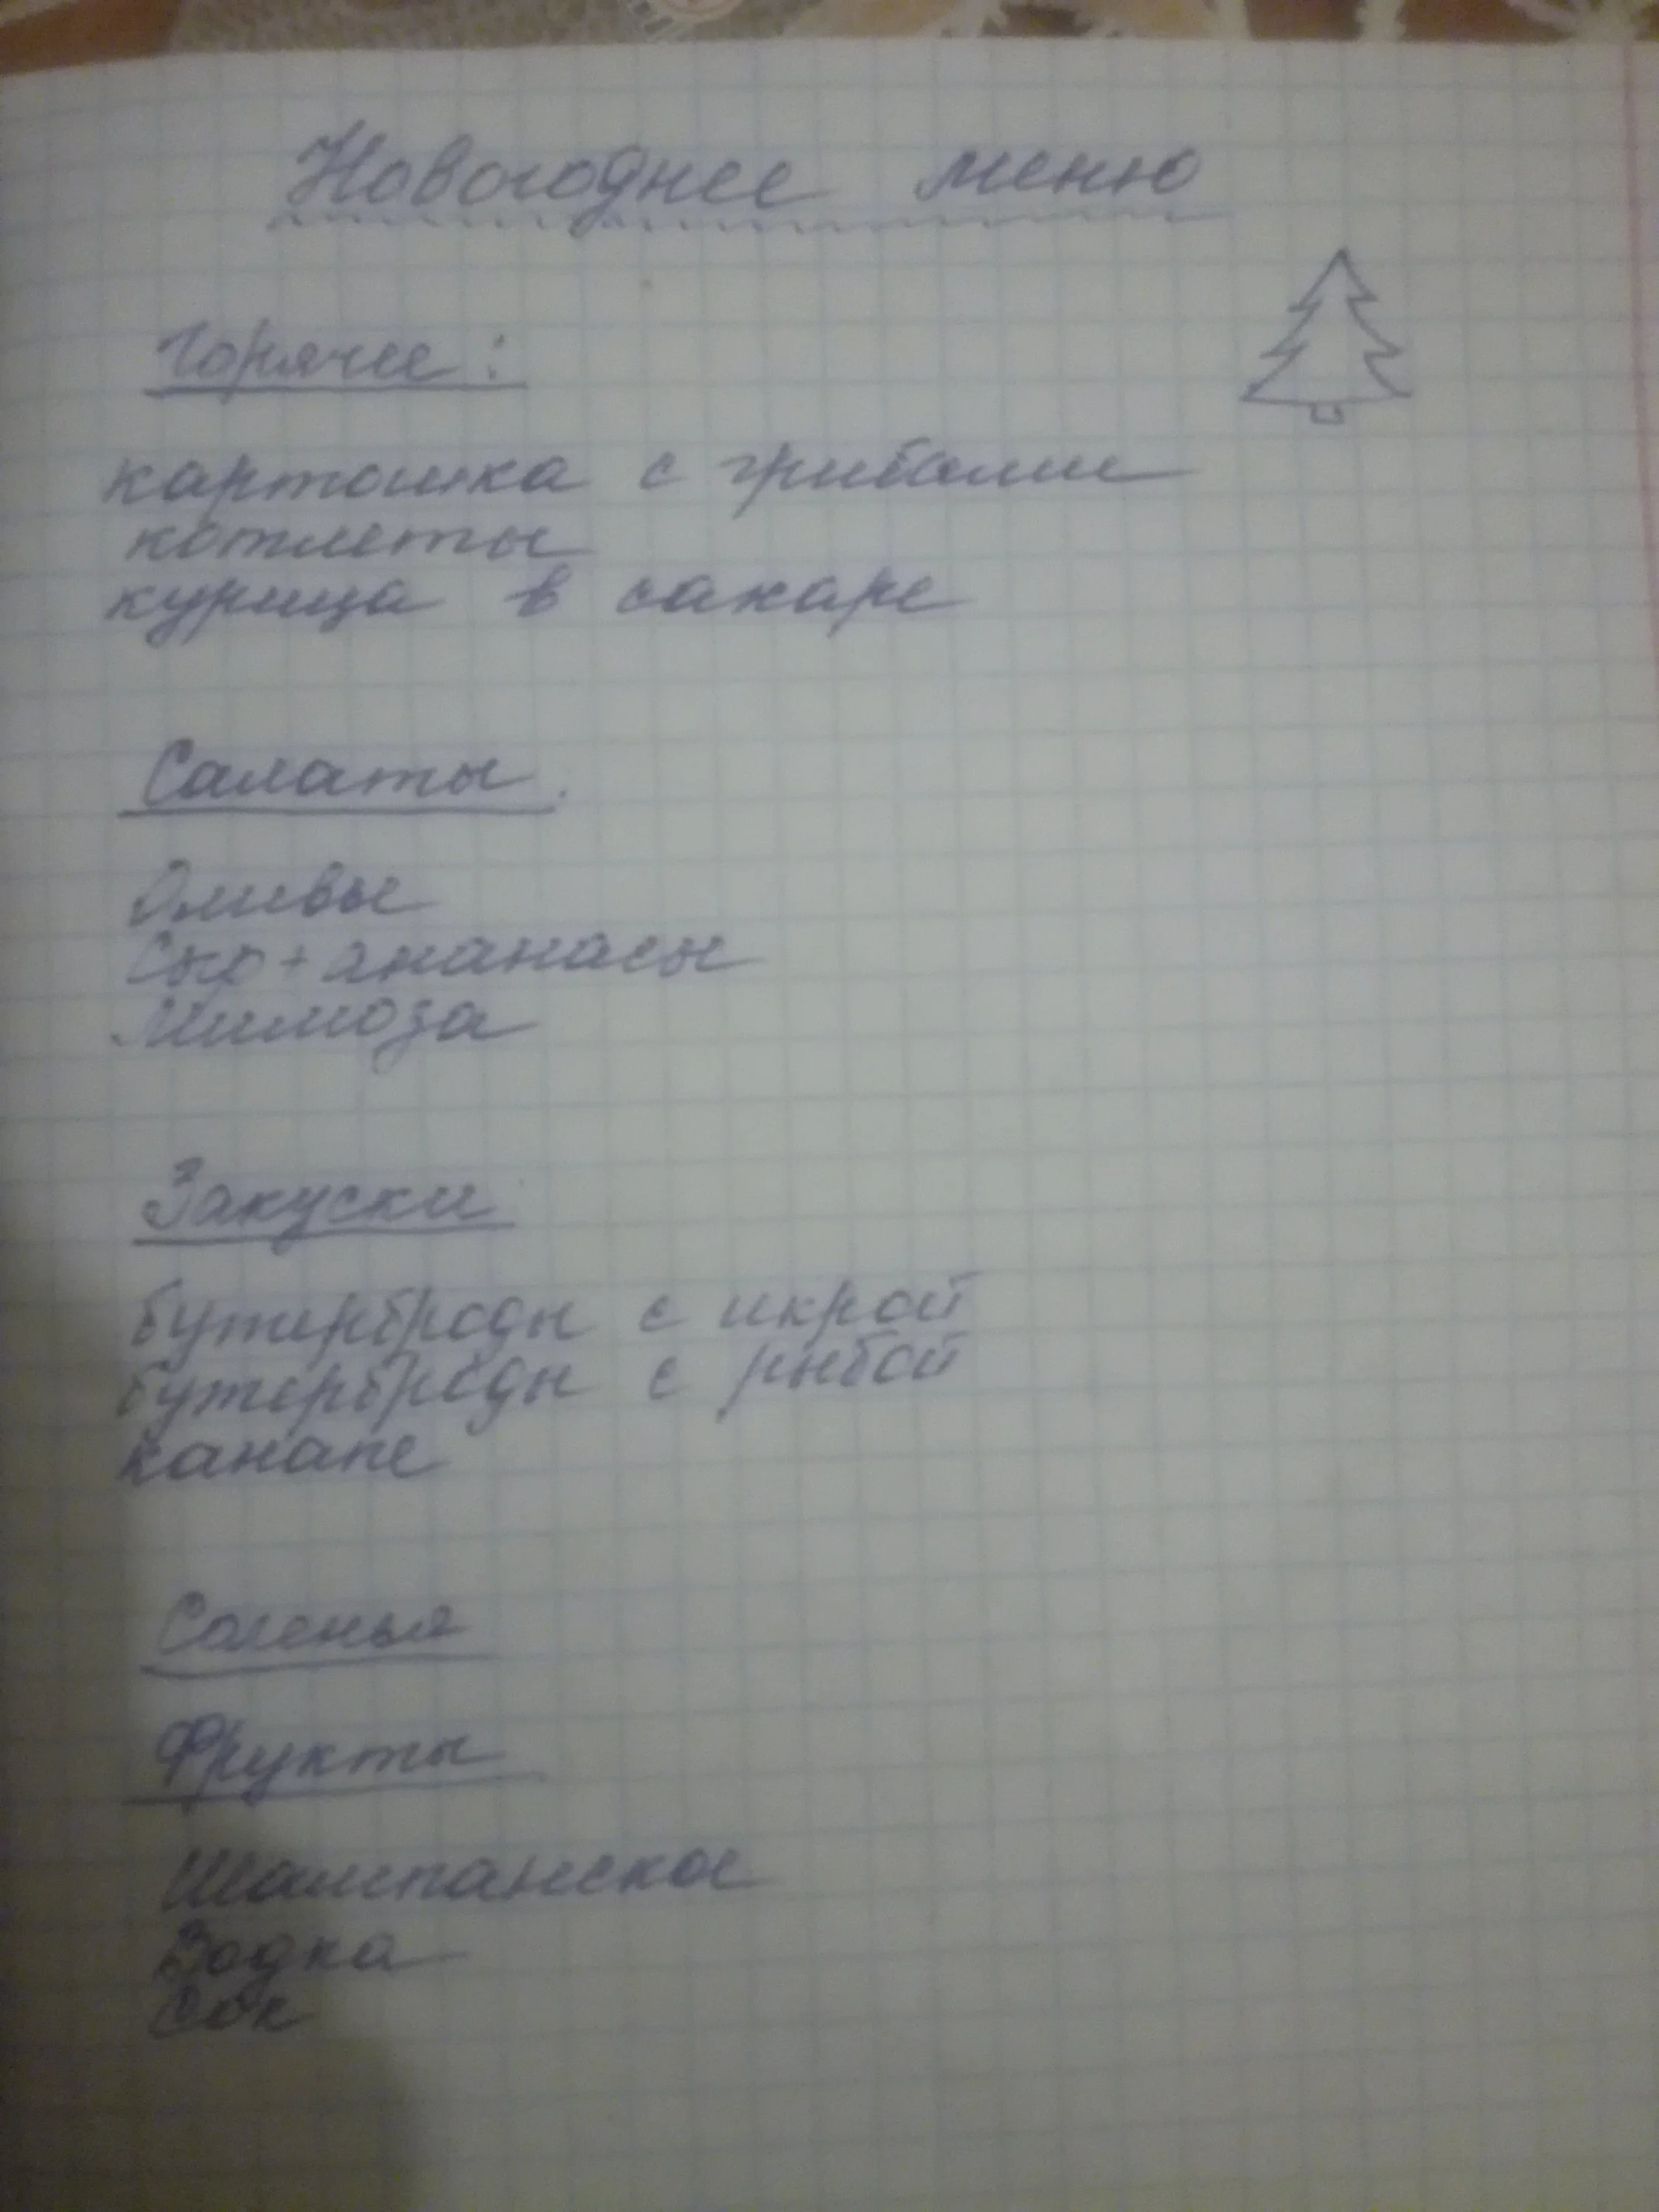 Новогоднее меню
Горячее:
картошка с грибами
котлеты
курица в сахаре
Салаты.
Оливье
Сыр + ананасы
Мимоза
Закуски
бутерброды с икрой
бутерброды с рыбой
канапе
Соленья
Фрукты
Шампанское
Водка
Сок